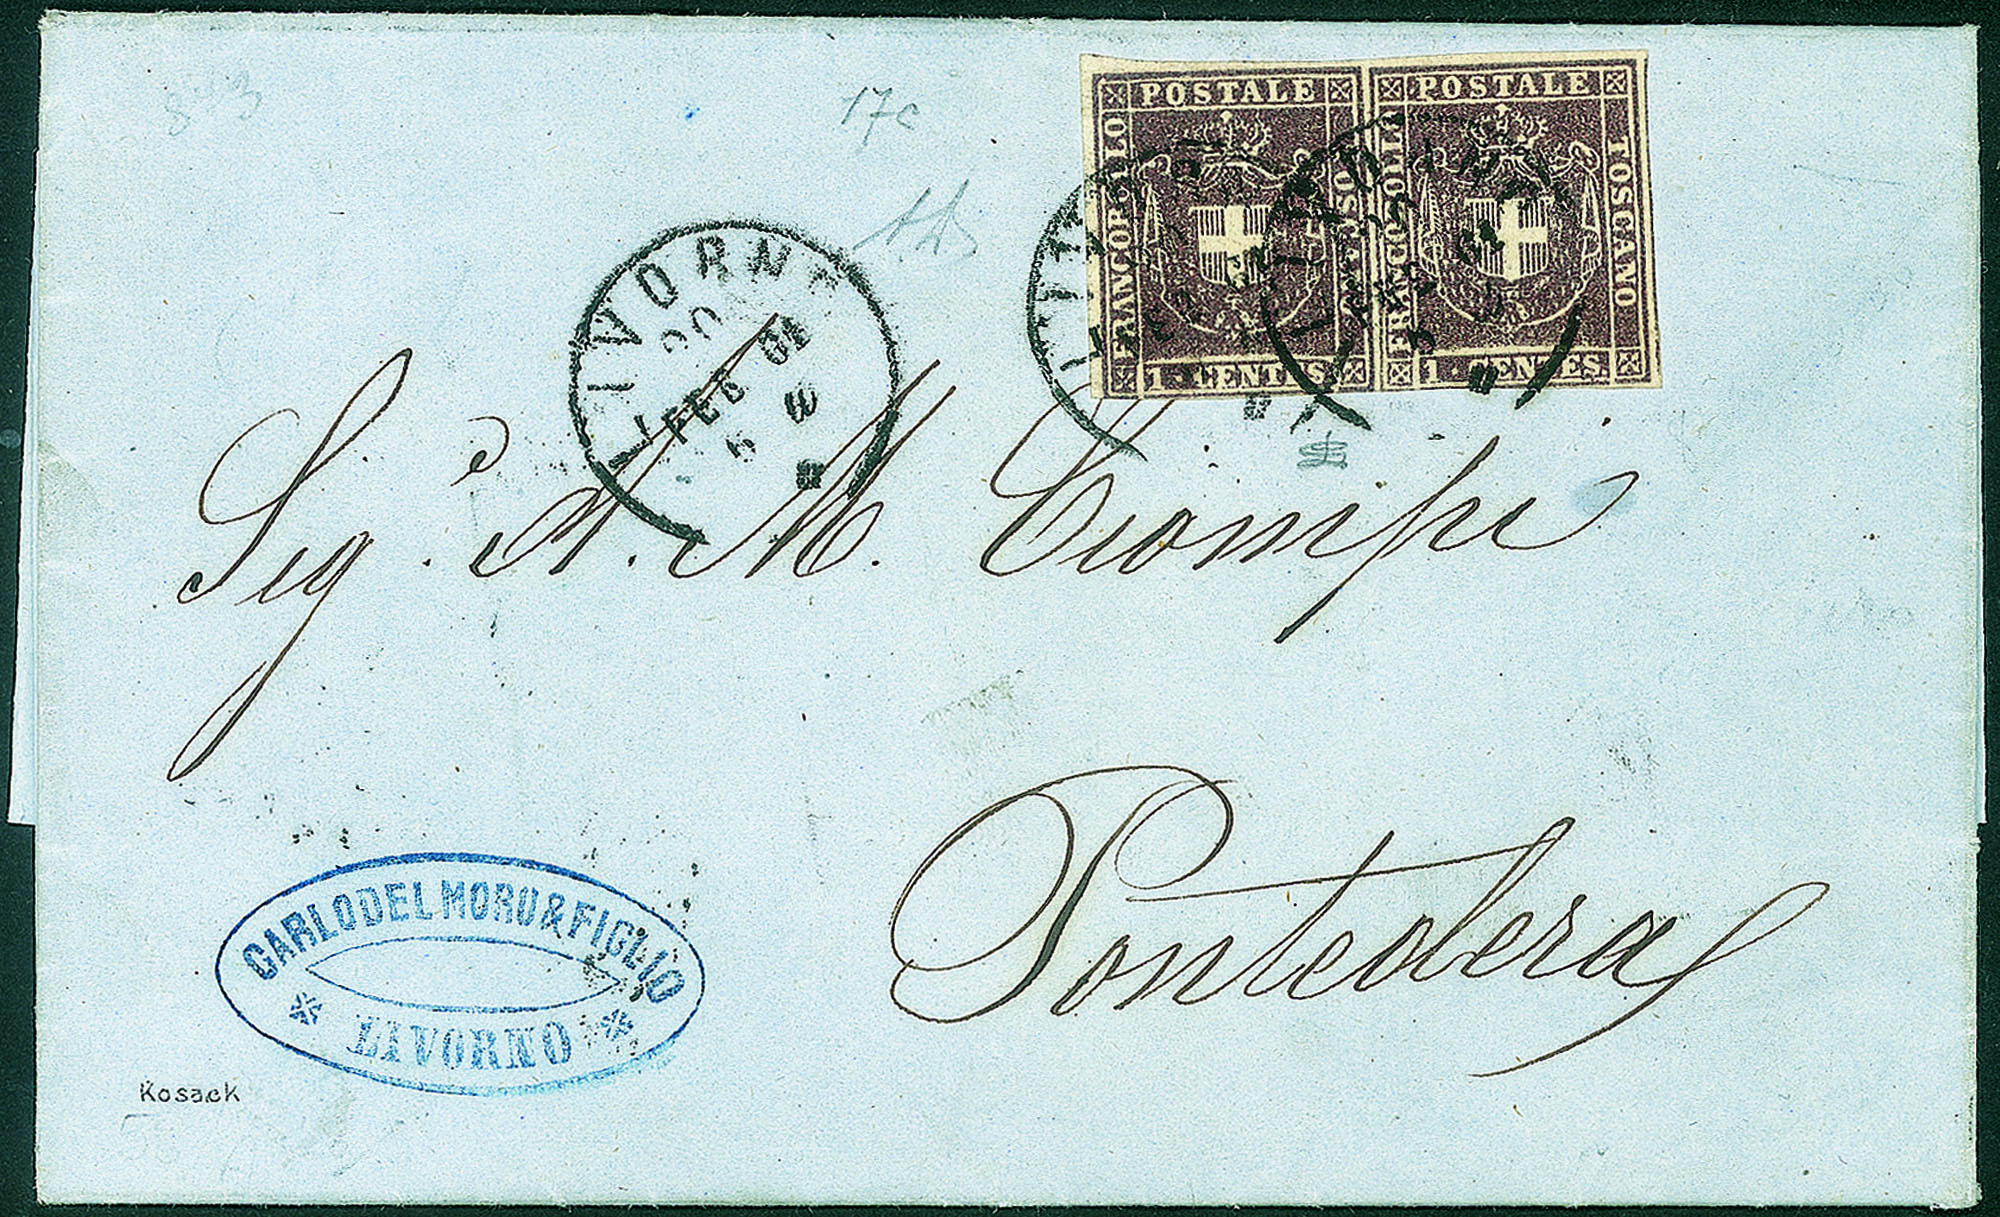 17c
FRANCOBOLLO POSTALE TOSCANO
1 · CENTES.
FRANCOBOLLO POSTALE TOSCANO
1 · CENTES.
LIVORNO
20
FEB 61
Sig. A. M. Ciompi
Pontedera
CARLO DEL MORO & FIGLIO
* LIVORNO *
Kosack